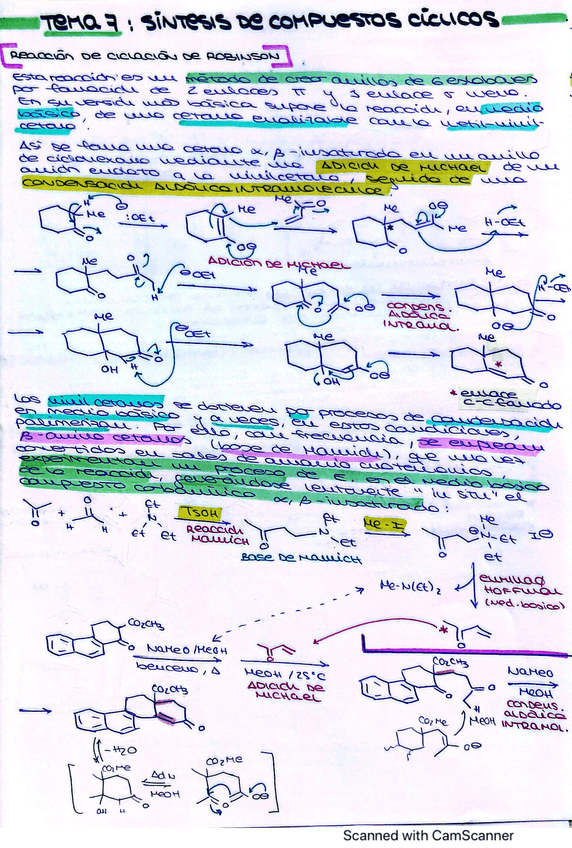 TEMA 7 : SÍNTESIS DE COMPUESTOS CÍCLICOS
REACCIÓN DE CICLACIÓN DE ROBINSON
Esta reacción es un método de crear anillos de 6 eslabones
por formación de 2 enlaces π y 1 enlace σ nuevo.
En su versión más básica supone la reacción, en medio
básico, de una cetona enolizable con la metil-vinil-
cetona.
Así se forma una cetona α, β-insaturada en un anillo
de ciclohexano mediante una ADICIÓN DE MICHAEL de un
anión enolato a la vinilcetona, seguida de una
CONDENSACIÓN ALDÓLICA INTRAMOLECULAR
H
Me
:OEt
O
Me
O⊖
O
Me
*
O
O⊖
Me
H-OEt
ADICIÓN DE MICHAEL
Me
O
O
H
⊖OEt
Me
O
O⊖
CONDENS.
ALDÓLICA
INTRAMOL.
Me
O⊖
O
H-OEt
Me
OH
H
O
⊖OEt
Me
OH
O⊖
Me
*
O
* enlace
C-C formado
Las vinil cetonas se obtienen por procesos de condensación
en medio básico y a veces, en estas condiciones,
polimerizan. Por ello, con frecuencia, se emplean
β-amino cetonas (bases de Mannich), que una vez
convertidas en sales de amonio cuaternarios,
experimentan un proceso E en el medio básico
de la reacción, generándose lentamente "in situ" el
compuesto carbonílico α, β-insaturado:
O
+
O
H H
+
Et
N
Et Et
TsOH
REACCIÓN
MANNICH
O
Et
N
Et
BASE DE MANNICH
Me-I
O
Me
⊕N-Et
Et
I⊖
Me-N(Et)₂
ELIMINAC
HOFFMAN
(med. básico)
CO₂CH₃
O
NaMeO/MeOH
benceno, Δ
O
MeOH / 25°C
ADICIÓN DE
MICHAEL
*
O
CO₂CH₃
O
O
H
MeOH
NaMeO
MeOH
CONDENS.
ALDÓLICA
INTRAMOL.
CO₂Me
O⊖
CO₂CH₃
O
-H₂O
CO₂Me
OH H
O
AdN
MeOH
CO₂Me
O
O⊖
Scanned with CamScanner